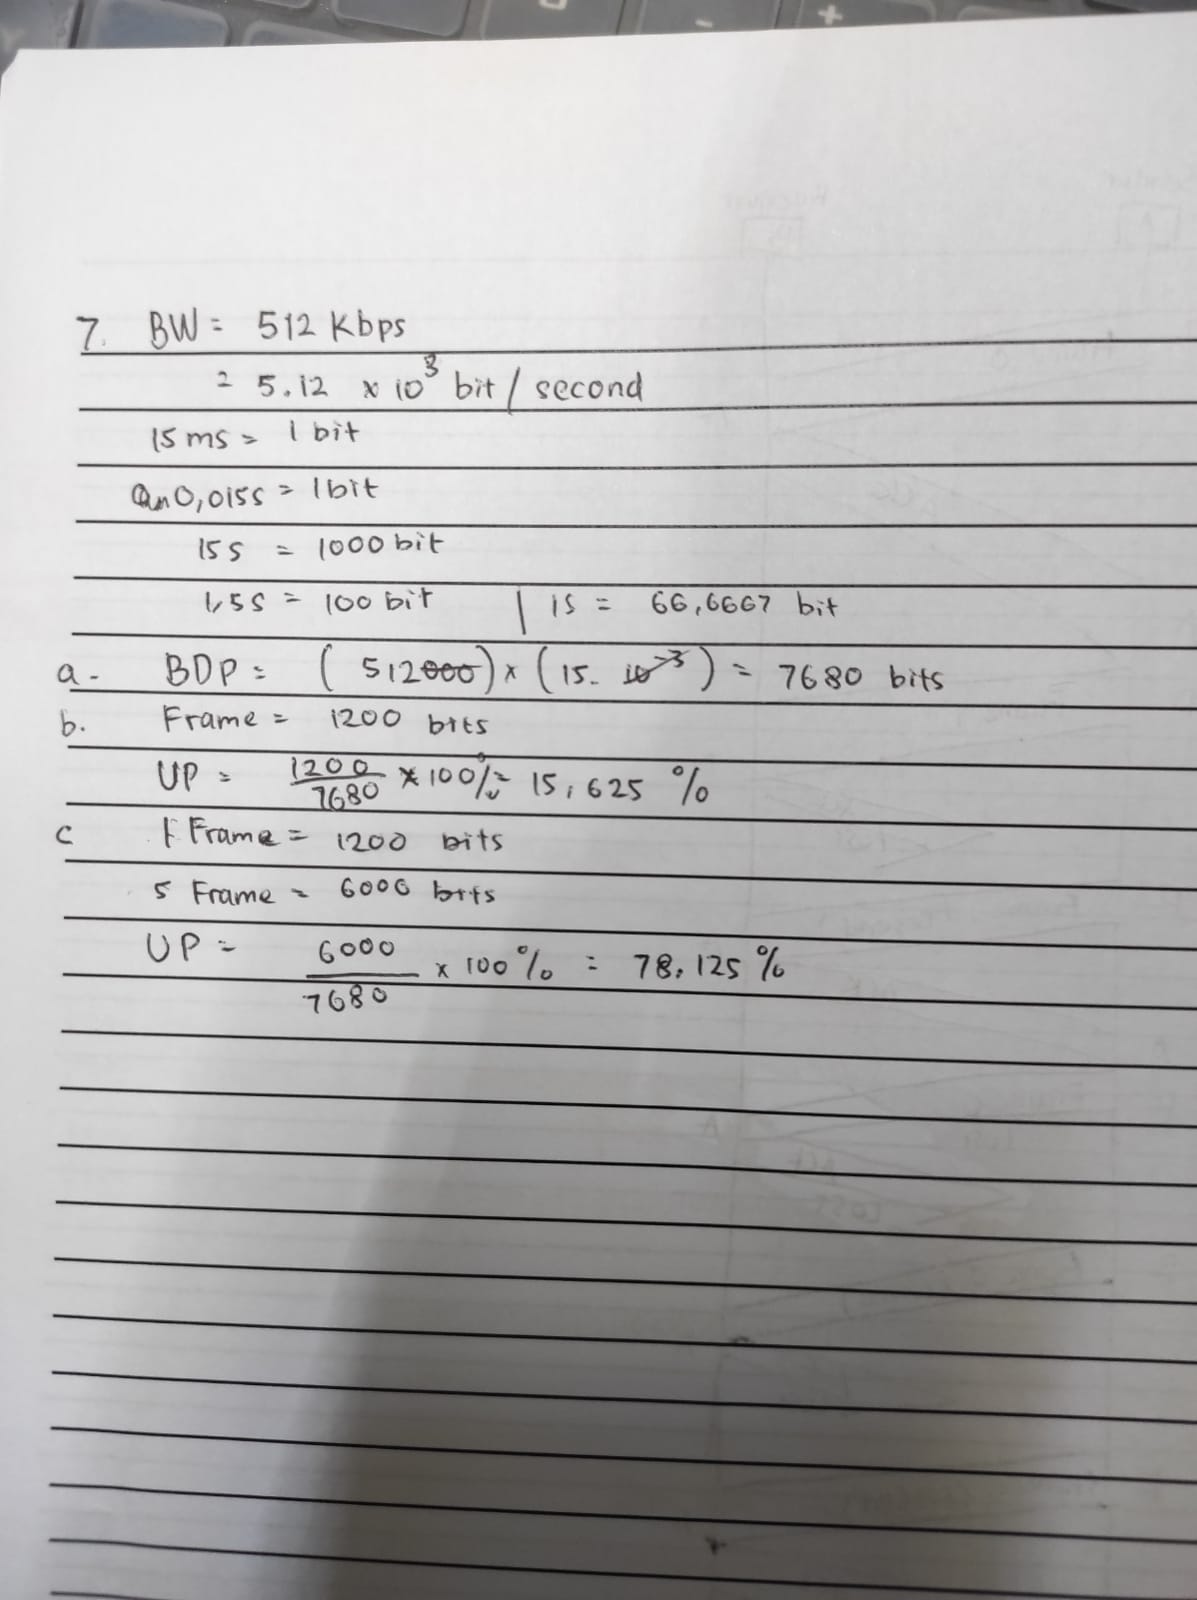 7. BW = 512 Kbps
= 5.12 x 10³ bit / second
15 ms = 1 bit
0,015s = 1 bit
15 s = 1000 bit
1,5 s = 100 bit | 1s = 66,6667 bit
a. BDP = ( 512000) x (15. 10⁻³ ) = 7680 bits
b. Frame = 1200 bits
UP = 1200/7680 x 100% = 15,625 %
c 1 Frame = 1200 bits
5 Frame = 6000 bits
UP = 6000/7680 x 100 % = 78,125 %